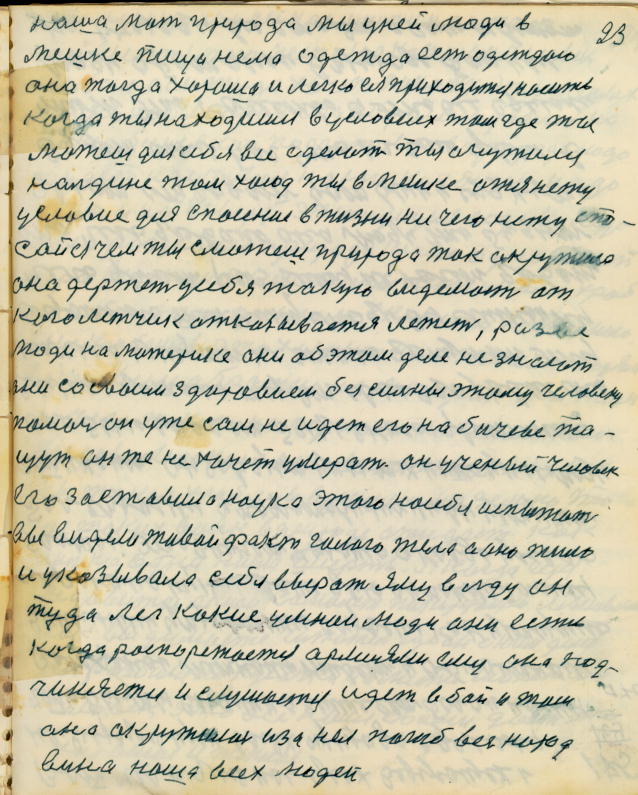 23
наша мат природа мы у ней люди в
мешке пища нема одежда ест одеждою
она тогда хороша и легко ея приходится носить
когда ты находишся в условеих там где ты
можеш для себя все сделат ты очутился
на льдине там холод ты в мешке отянету
условие для спасение в жизни ни чего нету
сайся чем ты сможеш природа так окружила
она держет у себя такую видемост от
кого летчик отказывается летет,
люди на материке они об этом деле не знают
они со своим здоровием без силны этому человеку
помоч он уже сам не идет его на бичеве та-
щут он же не хочет умерат он ученый человек
его заставила наука этого на себя испытат
вы видели живой факт голого тела а оно жило
и указывала себя вырат яму в льду он
туда лег какие умнаи люди они есть
когда распорежается армиями ему она под-
чиняется и слушается идет в бой и там
она окружилас из за нея погиб вес народ
вина наша всех людей